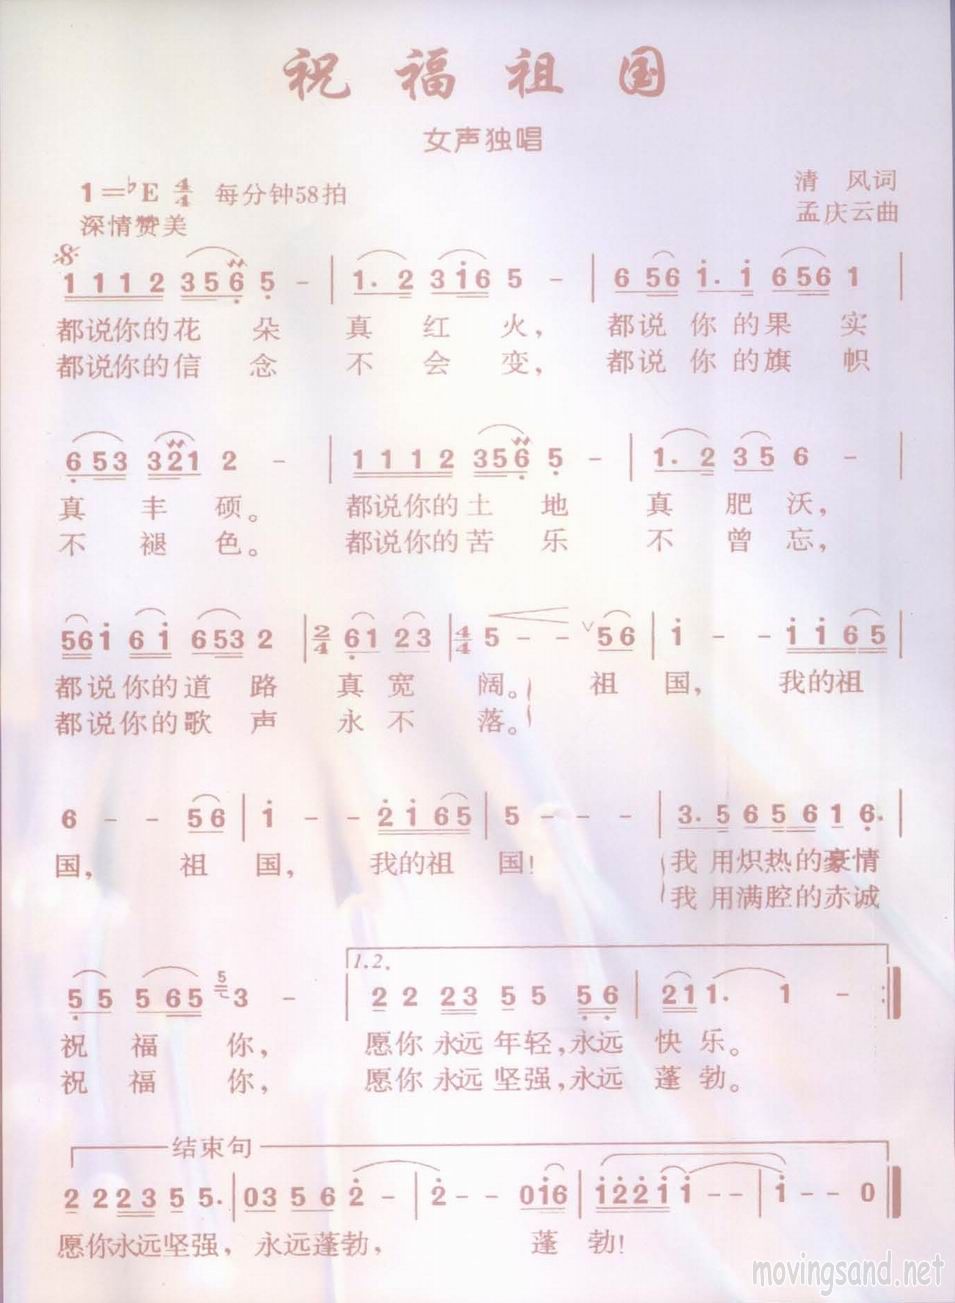 祝福祖国
女声独唱
1=♭E 4/4 每分钟58拍
清 风词
深情赞美
孟庆云曲
1 1 1 2 3 5 6 5 - | 1. 2 3 i 6 5 - | 6 5 6 i. i 6 5 6 1 |
都说你的花 朵 真 红 火, 都说 你 的果 实
都说你的信 念 不 会 变, 都说 你 的旗 帜
6 5 3 3 2 1 2 - | 1 1 1 2 3 5 6 5 - | 1. 2 3 5 6 - |
真 丰 硕。 都说你的土 地 真 肥 沃,
不 褪 色。 都说你的苦 乐 不 曾 忘,
5 6 i 6 i 6 5 3 2 | 2/4 6 1 2 3 | 4/4 5 - - ∨ 5 6 | i - - i i 6 5 |
都说你的道 路 真 宽 阔。 祖 国, 我的祖
都说你的歌 声 永 不 落。
6 - - 5 6 | i - - 2 i 6 5 | 5 - - - | 3. 5 6 5 6 1 6. |
国, 祖 国, 我的祖 国! 我 用炽热的豪情
我 用满腔的赤诚
5 5 5 6 5 5 3 - | 1.2. 2 2 2 3 5 5 5 6 | 2 1 1 1. 1 - :|
祝 福 你, 愿你 永远 年轻,永远 快 乐。
祝 福 你, 愿你 永远 坚强,永远 蓬 勃。
结束句
2 2 2 3 5 5. | 0 3 5 6 2 - | 2 - - 0 i 6 | i 2 2 i i - - | i - - 0 |
愿你永远坚强, 永远蓬勃, 蓬 勃!
movingsand.net